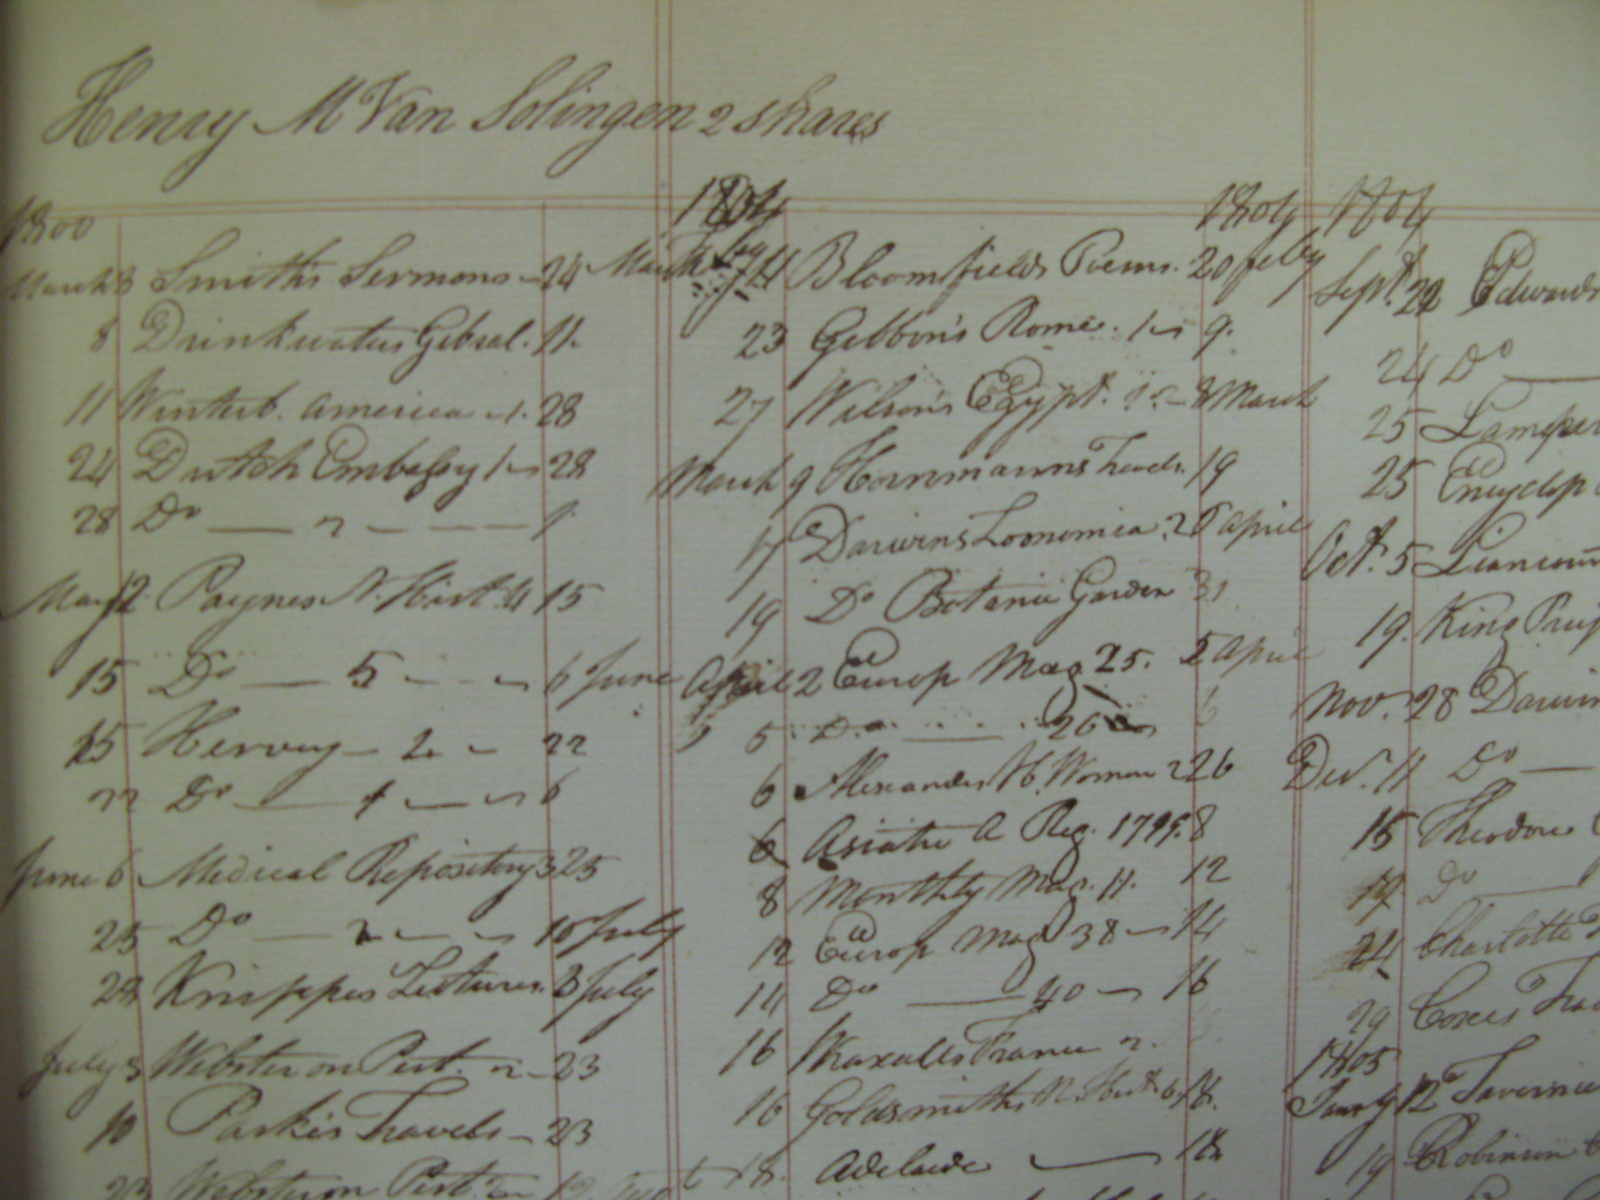 Henry M Van Solingen 2 shares
1800
March 3 Smith's Sermons - 24
8 Drinkwaters Gibral. 11.
11 Winterb. America - 1. 28
24 Dutch Embassy 1 - 28
28 Do — 2 - - - - 1
May 12 Paynes N. Hist. 4 15
15 Do — 5 - - - 6 June
15 Hervey - 2 - 22
22 Do — 1 - - 6
June 6 Medical Repository 3 25
25 Do — 2 - - 10 July
28 Knippes Lectures. 3 July
July 3 Webster on Pest. 2 - 23
10 Parkes Travels - 23
23 Webster on Pest. 2 - 12
1804 1804
14 Bloomfields Poems. 20 feby
23 Gibbon's Rome. 1 - 9.
27 Wilson's Egypt. 8 March
March 9 Hornmanns Travels. 19
17 Darwins Zoonomia. 2 April
19 Do Botanic Garden 31
April 2 Europ Mag 25. 5 April
5 Do — 26 6
6 Alexanders H. Woman 2 26
6 Asiatic A Reg. 1799. 8
8 Monthly Mag. 11. 12
12 Europ Mag 38 - 14
14 Do — 40 - 16
16 Wraxalls France 2.
16 Goldsmiths N. Hist. 6. 18.
18. Adelaide — 18
1804
Sept. 22 Edwards
24 Do —
25
25 Encyclop
Oct. 5 Liancour
19. King
Nov. 28 Darwin
Dec. 11 Do —
15 Theodore
19 Do —
24 Charlotte
29 Coxes Tra
1805
Jany 12 Tavernie
19 Robinson